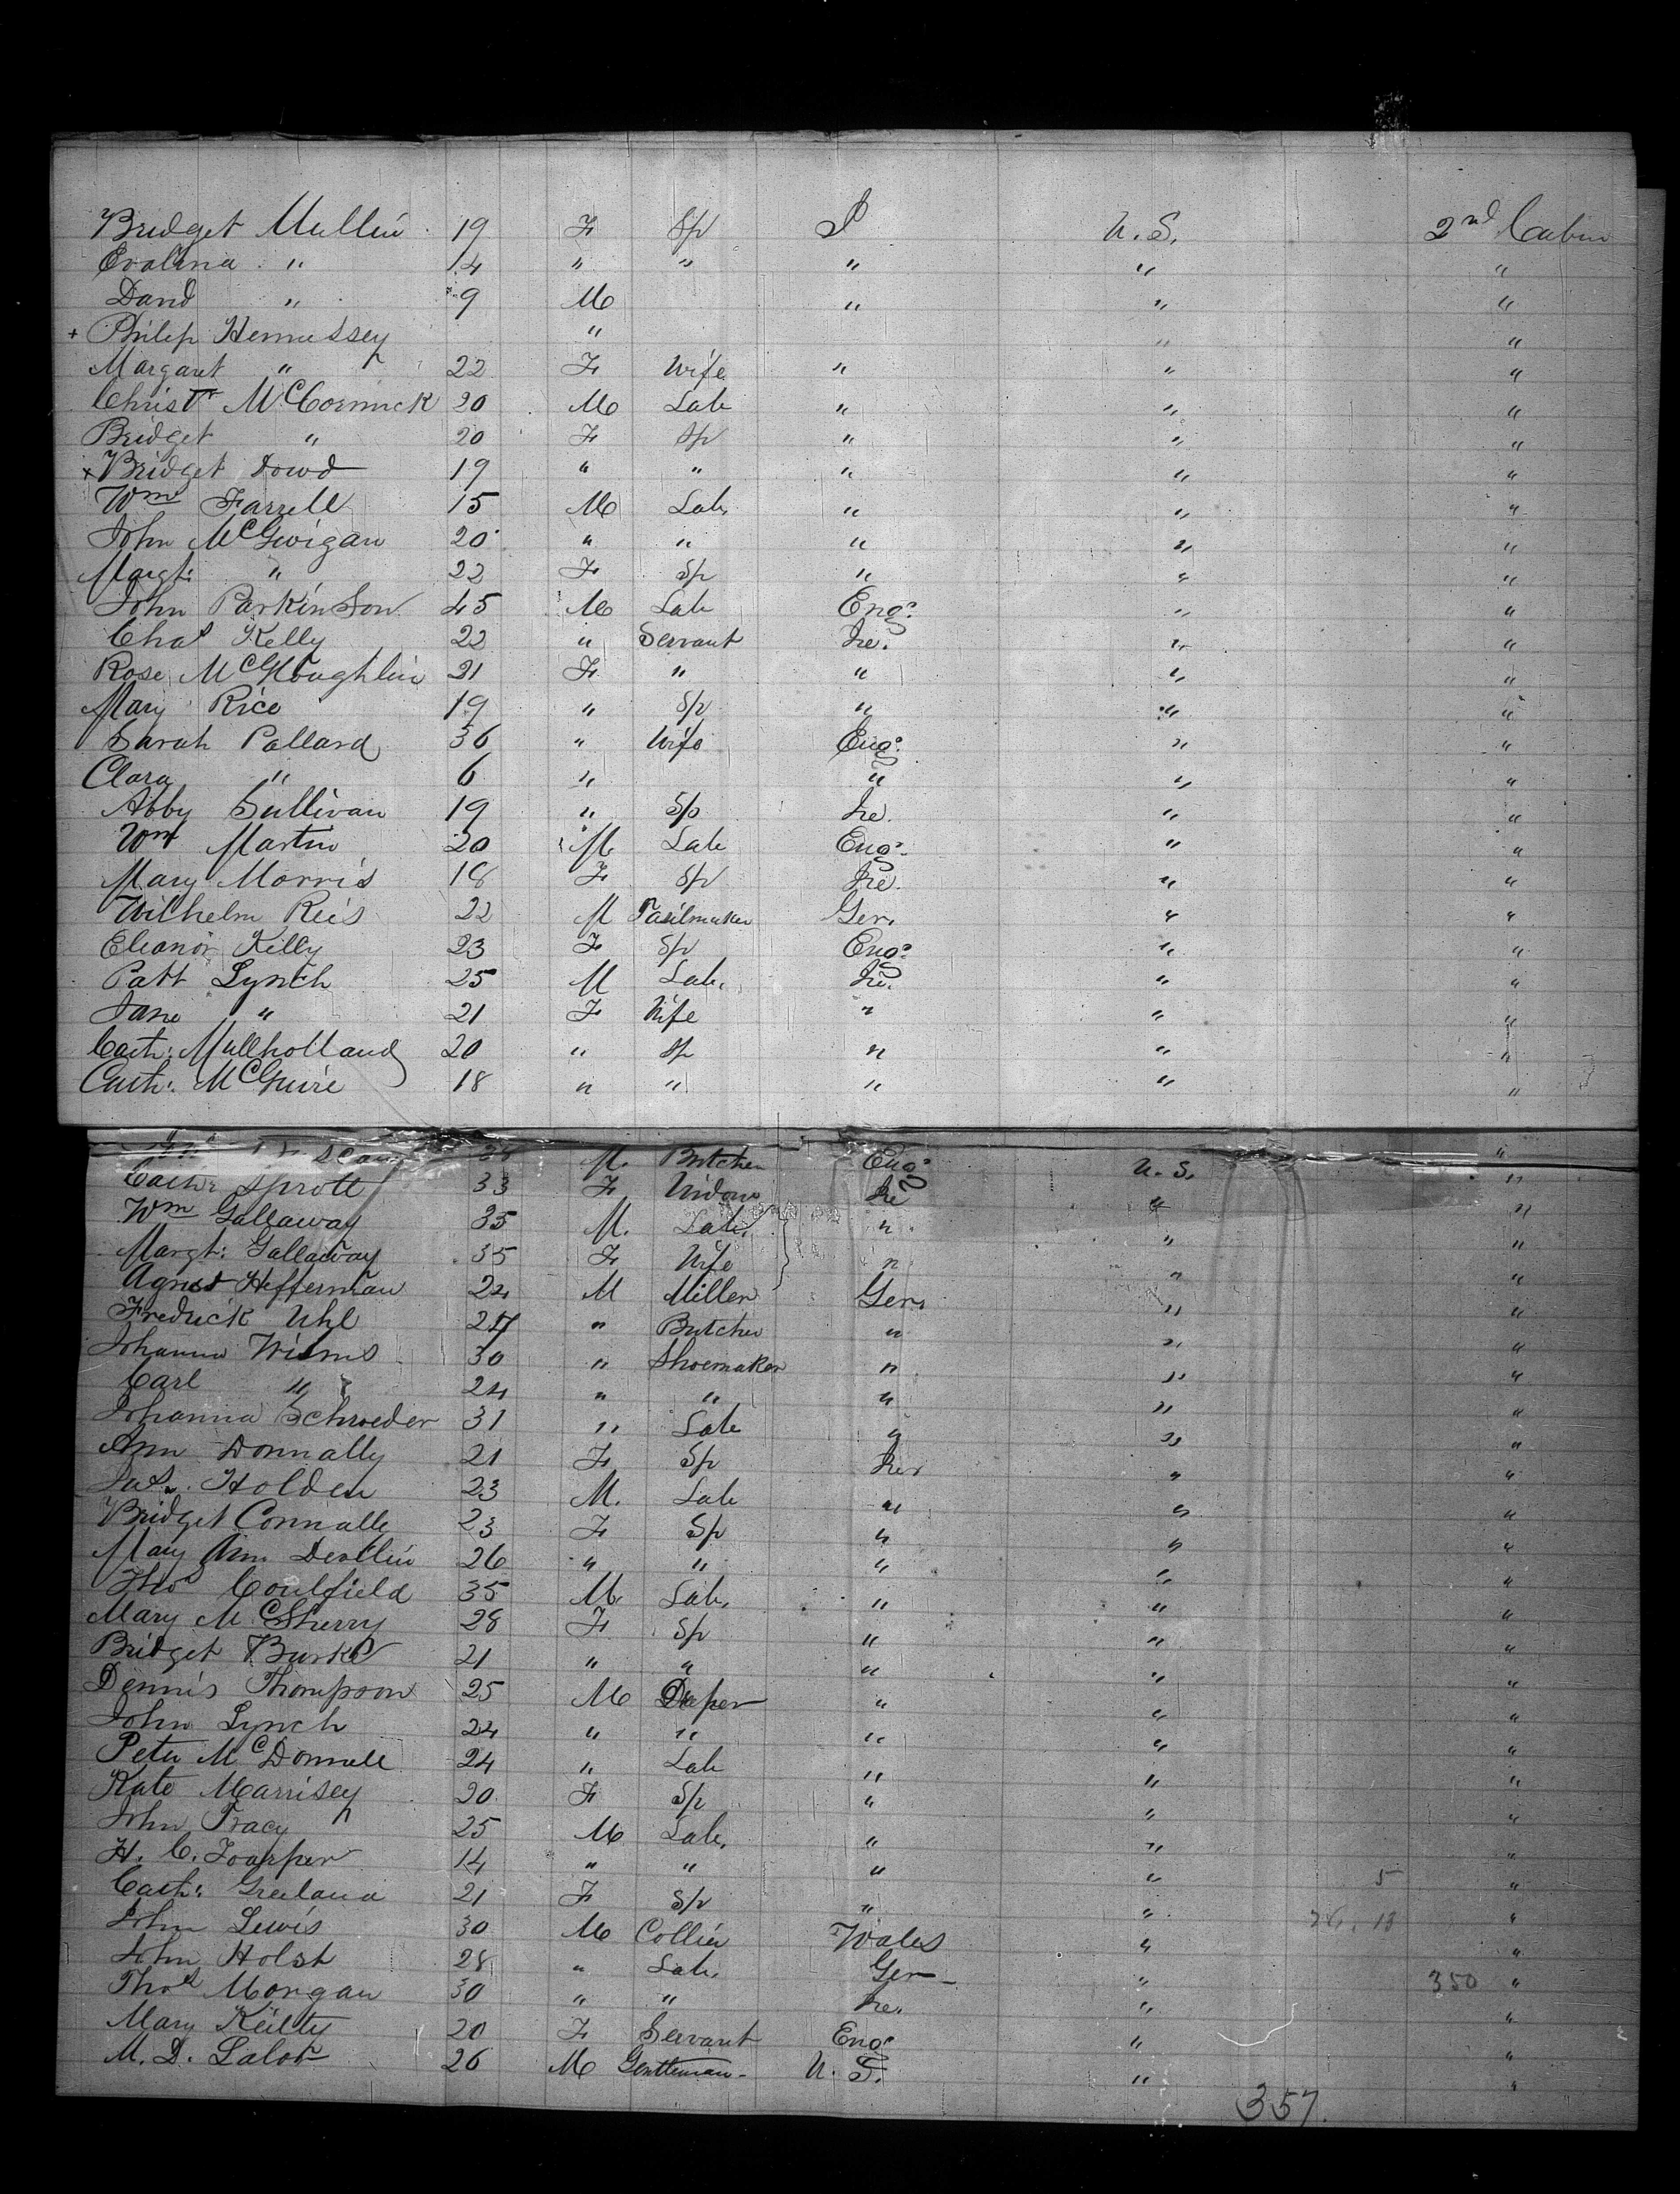 Bridget Mullin 19 F Sp I U.S. 2nd Cabin
Evalena " 14 " " " " "
David " 9 M " " "
+ Philip Hennessey " " "
Margaret " 22 F Wife " " "
Christr McCormick 20 M Lab " " "
Bridget " 20 F Sp " " "
x Bridget Dowd 19 " " " " "
Wm Farrell 15 M Lab. " " "
John McGwigan 20 " " " " "
Margt: " 22 F Sp " " "
John Parkinson 45 M Lab Eng. " "
Chas Kelly 22 " Servant Ire. " "
Rose 21 F " " " "
Mary Rice 19 " Sp " " "
Sarah Pallard 36 " Wife Eng. " "
Clara " 6 " " " "
Abby Sullivan 19 " Sp Ire. " "
Wm Martin 20 M Lab Eng. " "
Mary Morris 18 F Sp Ire. " "
Wilhelm Reis 22 M Ger. " "
Eleanor Kelly 23 F Sp Eng. " "
Patt Lynch 25 M Lab. Ire. " "
Jane " 21 F Wife " " "
Cath: Mullholland 20 " Sp " " "
Cath: McGuire 18 " " " " "
M. Butcher Eng. U.S. "
Cath: Sprott 33 F Widow Ire " "
Wm Gallaway 35 M. Lab. " " "
Margt: Gallaway 35 F Wife " " "
Agnes Heffernan 24 M Miller Ger. " "
Fredrick Uhl 27 " Butcher " " "
Johanna Wisms 30 " Shoemaker " " "
Carl " 24 " " " " "
Johanna Schroeder 31 " Lab " " "
Ann Donnally 21 F Sp Ire. " "
Jas. Holden 23 M. Lab " " "
Bridget Connally 23 F Sp " " "
Mary Ann Devllin 26 " " " " "
Thos Coulfield 35 M Lab. " " "
Mary McSherry 28 F Sp " " "
Bridget Burke 21 " " " " "
Dennis Thompson 25 M Draper " " "
John Lynch 24 " " " " "
Peter McDonnell 24 " Lab " " "
Kate Marrisey 20 F Sp " " "
John Tracy 25 M Lab. " " "
H. C. 14 " " " " 5 "
Cath: 21 F Sp " " 13 "
John Lewis 30 M Collier Wales " "
John Holst 28 " Lab. Ger " 350 "
Thos Morgan 30 " " Ire. " "
Mary Keilty 20 F Servant Eng. " "
M. D. Lalor 26 M Gentleman U. S. " "
357.